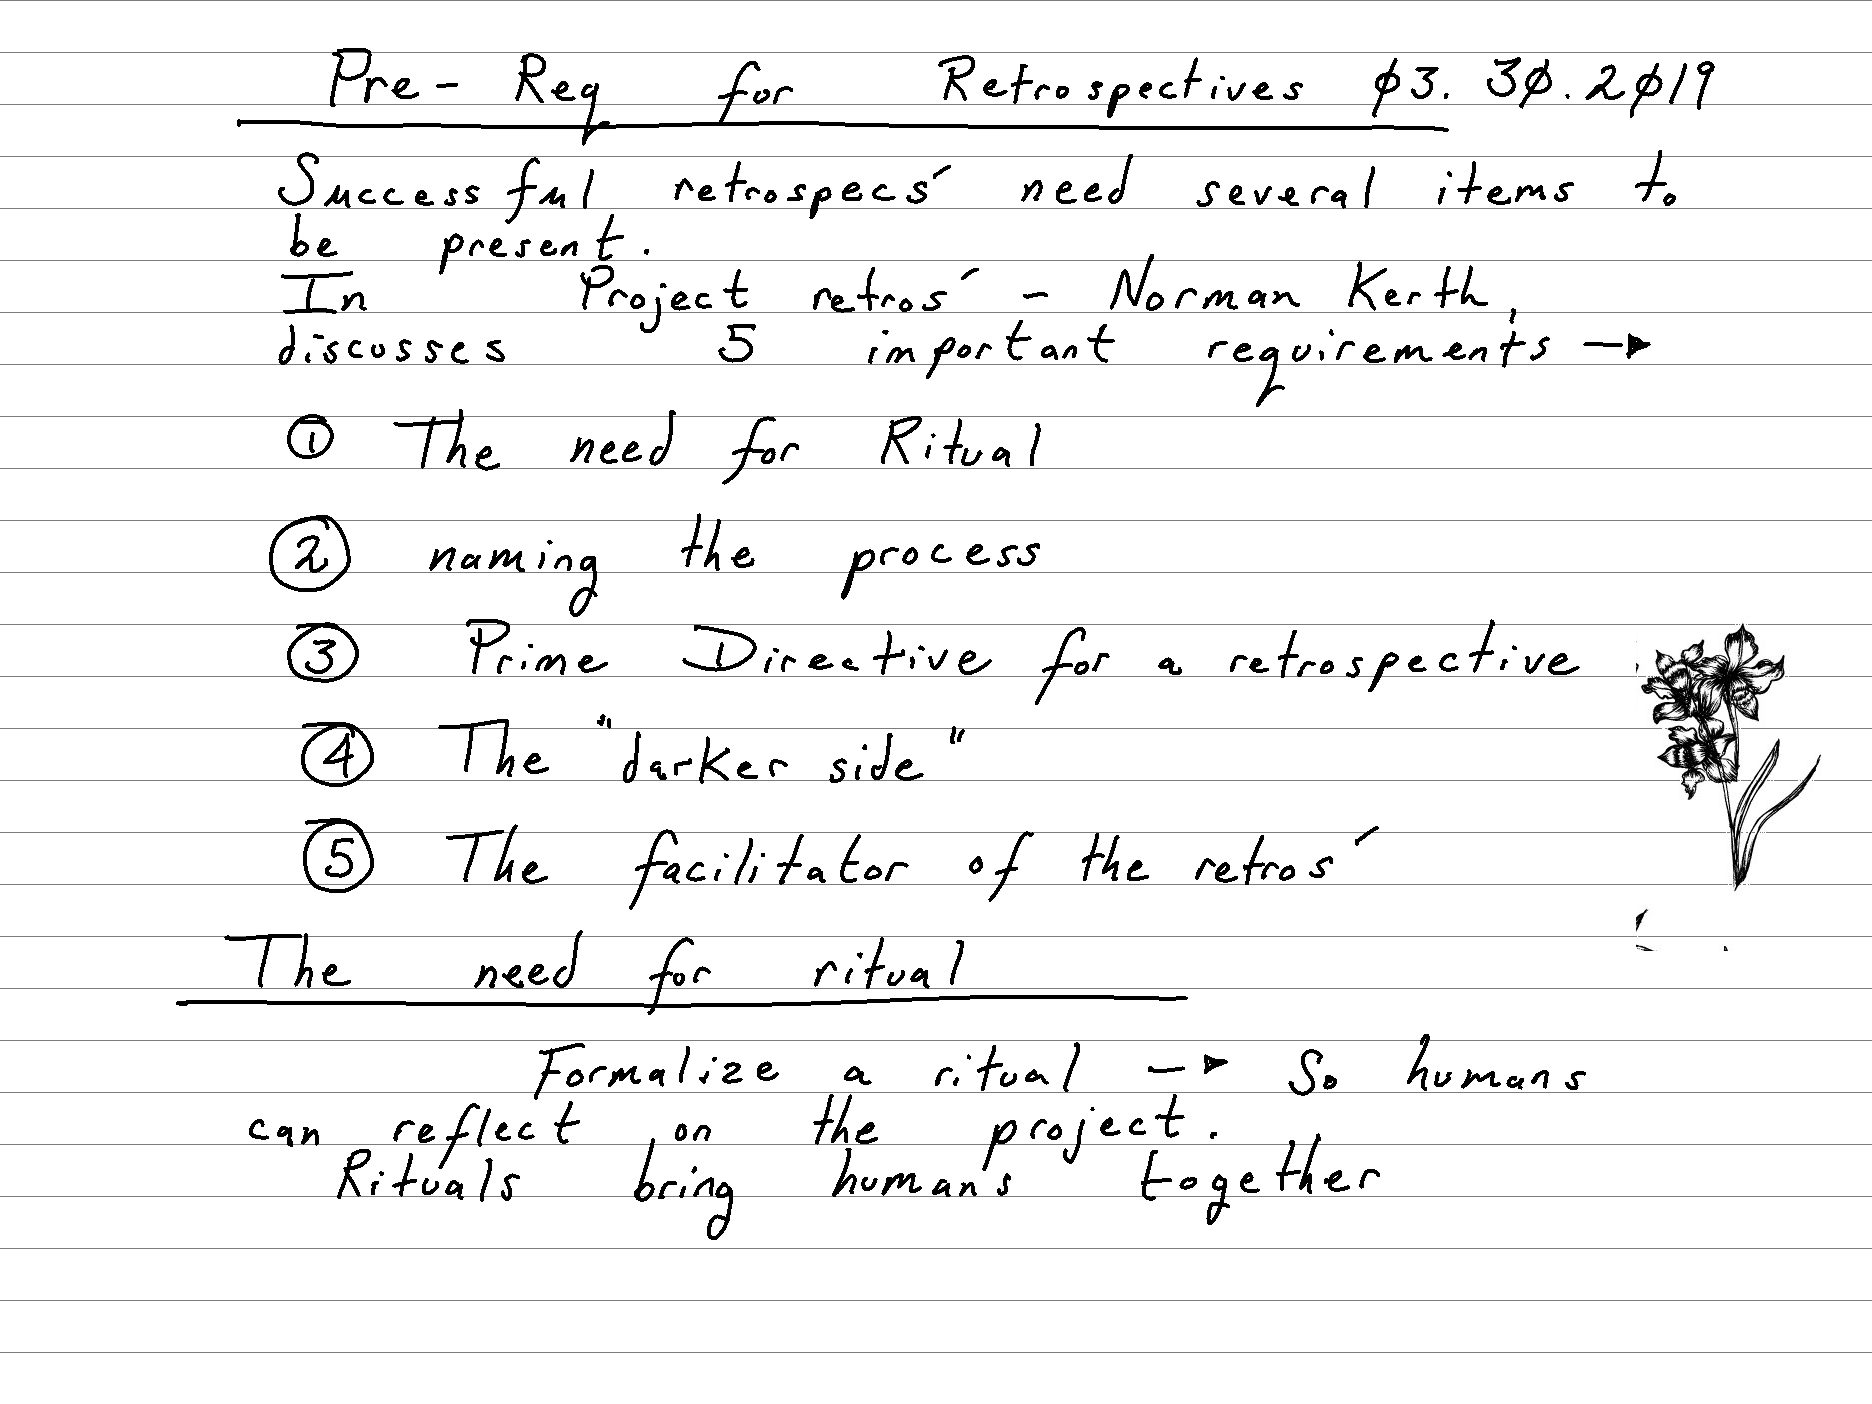 Pre- Req for Retrospectives 03. 30. 2019
Successful retrospecs´ need several items to
be present.
In Project retros´ - Norman Kerth,
discusses 5 important requirements →
① The need for Ritual
② naming the process
③ Prime Directive for a retrospective
④ The "darker side"
⑤ The facilitator of the retros´
The need for ritual
Formalize a ritual → So humans
can reflect on the project.
Rituals bring humans together